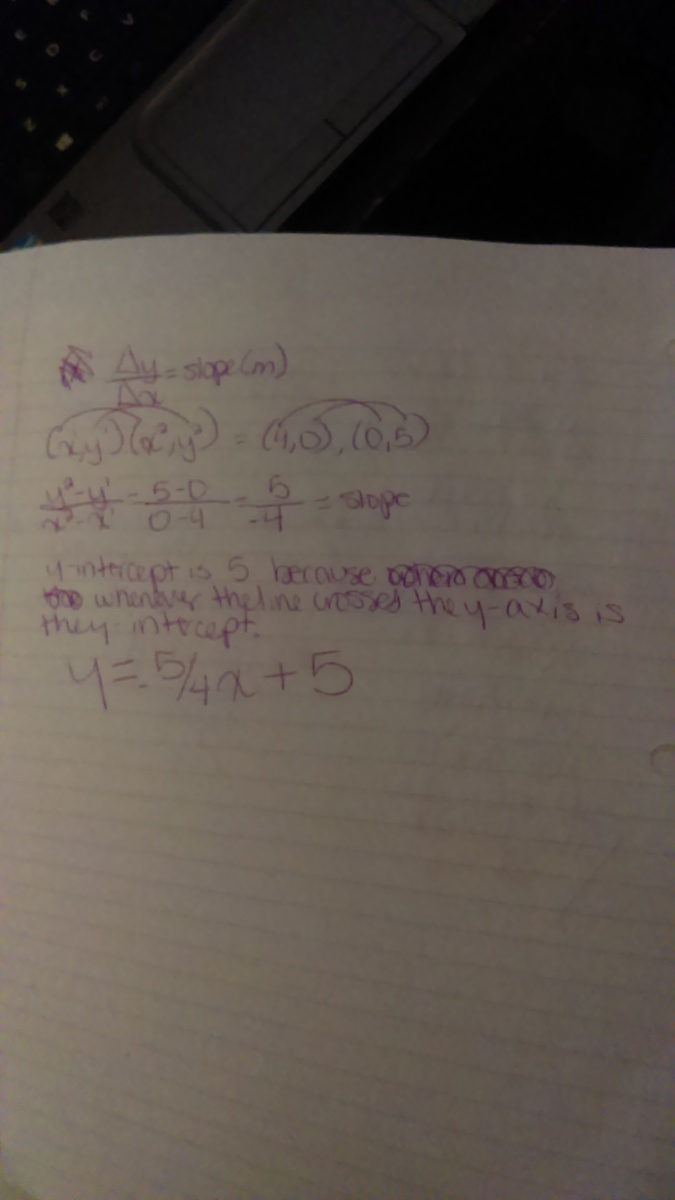 Δy/Δx = slope(m)
(x¹,y¹)(x²,y²) = (4,0),(0,5)
y²-y¹/x²-x¹ = 5-0/0-4 = 5/-4 = slope
y-intercept is 5 because
whenever the line crosses the y-axis is
the y-intecept.
y=-5/4x+5